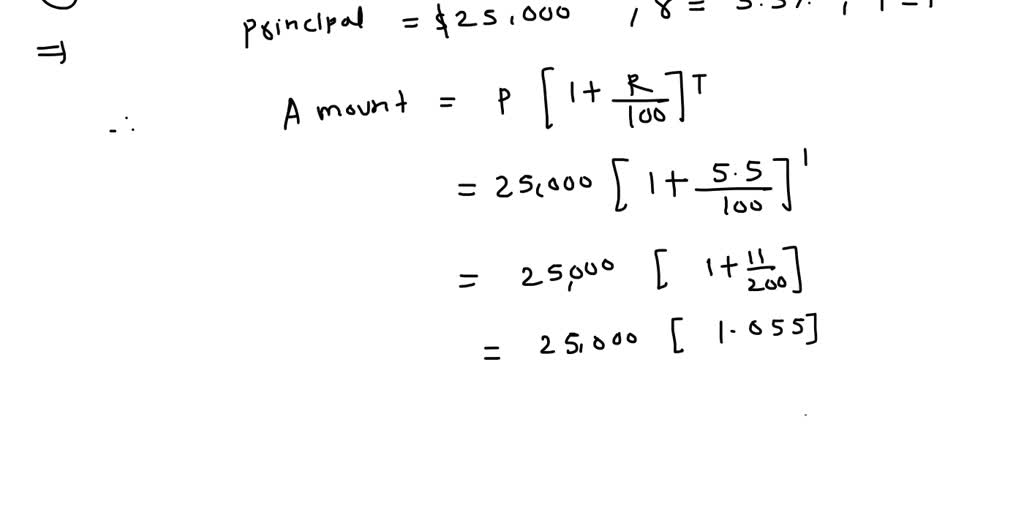 ⇒ principal = $25,000 , r = 5.5% , T = 1
∴ Amount = P [1 + R/100]^T
= 25,000 [1 + 5.5/100]^1
= 25,000 [1 + 11/200]
= 25,000 [1.055]